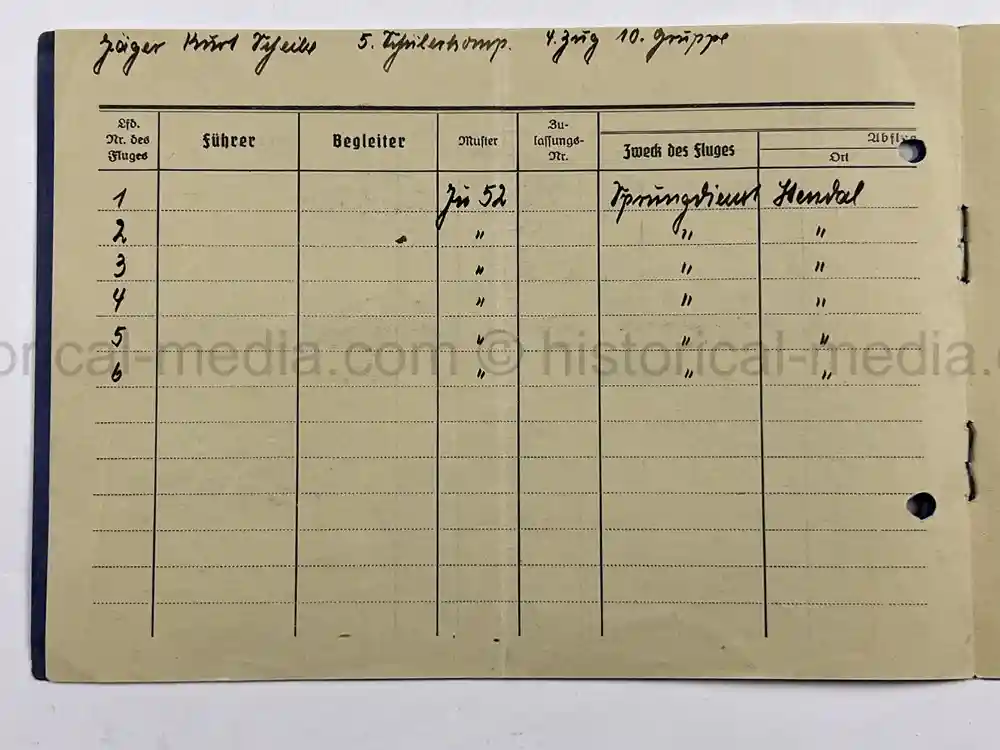 Jäger Kurt Scheibe 5. Schülerkomp. 4. Zug 10. Gruppe
Lfd. Nr. des Fluges
Führer
Begleiter
Muster
Zu-
lassungs-
Nr.
Zweck des Fluges
Abflug
Ort
1 Ju 52 Sprungdienst Stendal
2 " " "
3 " " "
4 " " "
5 " " "
6 " " "
historical-media.com © historical-media.